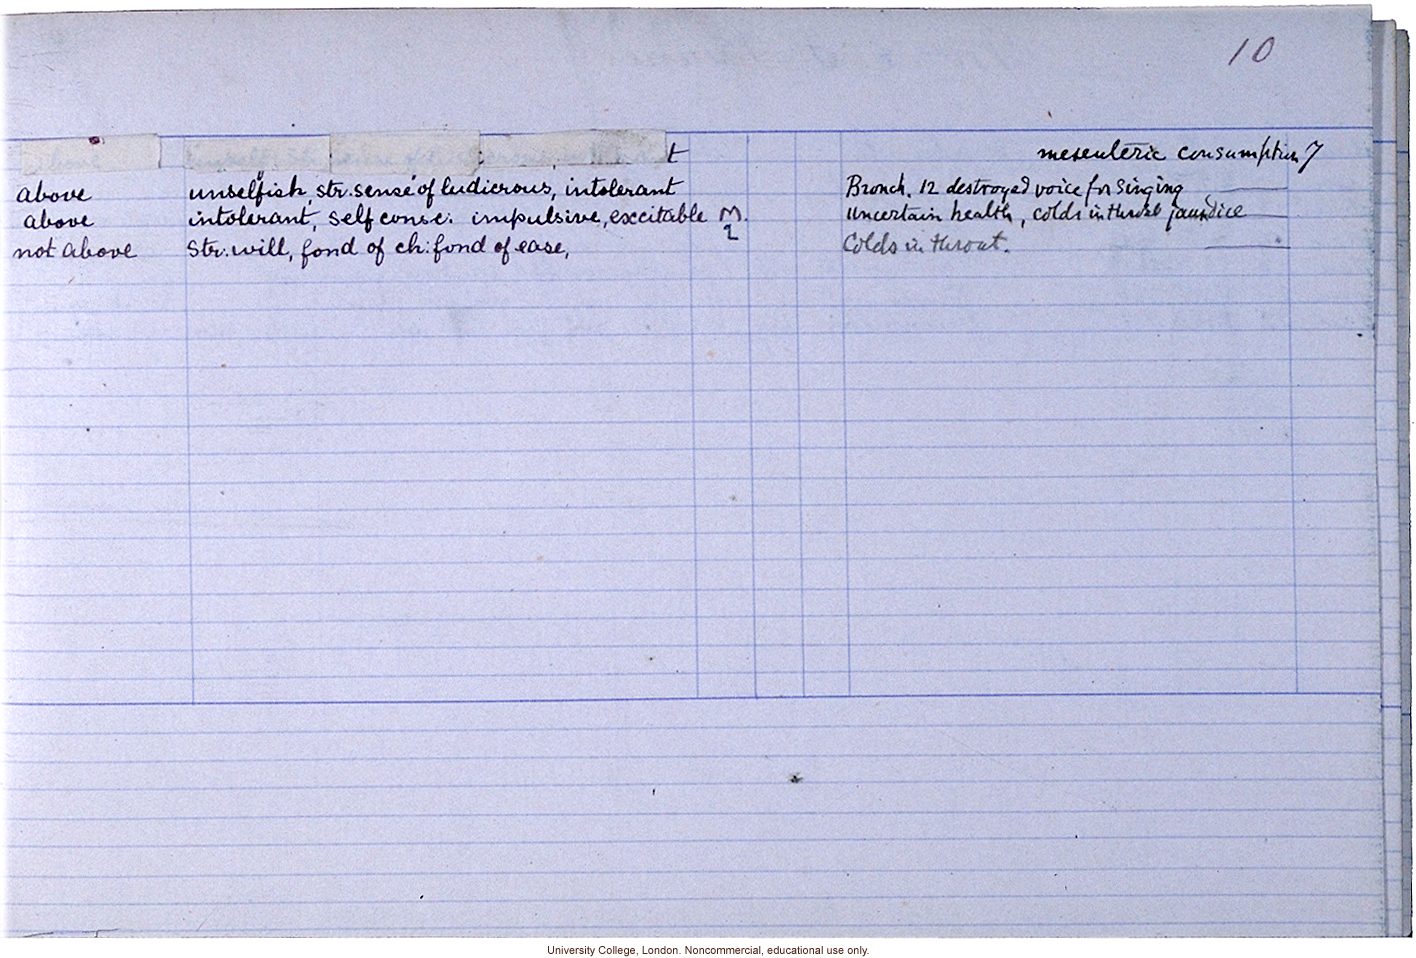 10
t mesenteric consumption 7
above unselfish, str. sense of ludicrous, intolerant Bronch. 12 destroyed voice for singing
above intolerant, self consc: impulsive, excitable M. uncertain health, colds in throat jaundice
2
not above Str. will, fond of ch: fond of ease, Colds in throat.
University College, London. Noncommercial, educational use only.